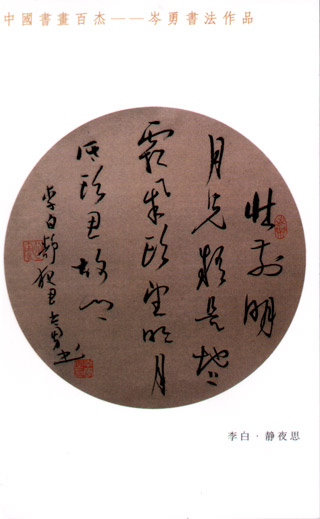 中國書畫百杰——岑勇書法作品
牀前明
月光疑是地上
霜舉頭望明月
低頭思故鄉
李白靜夜思岑勇書
李白·静夜思